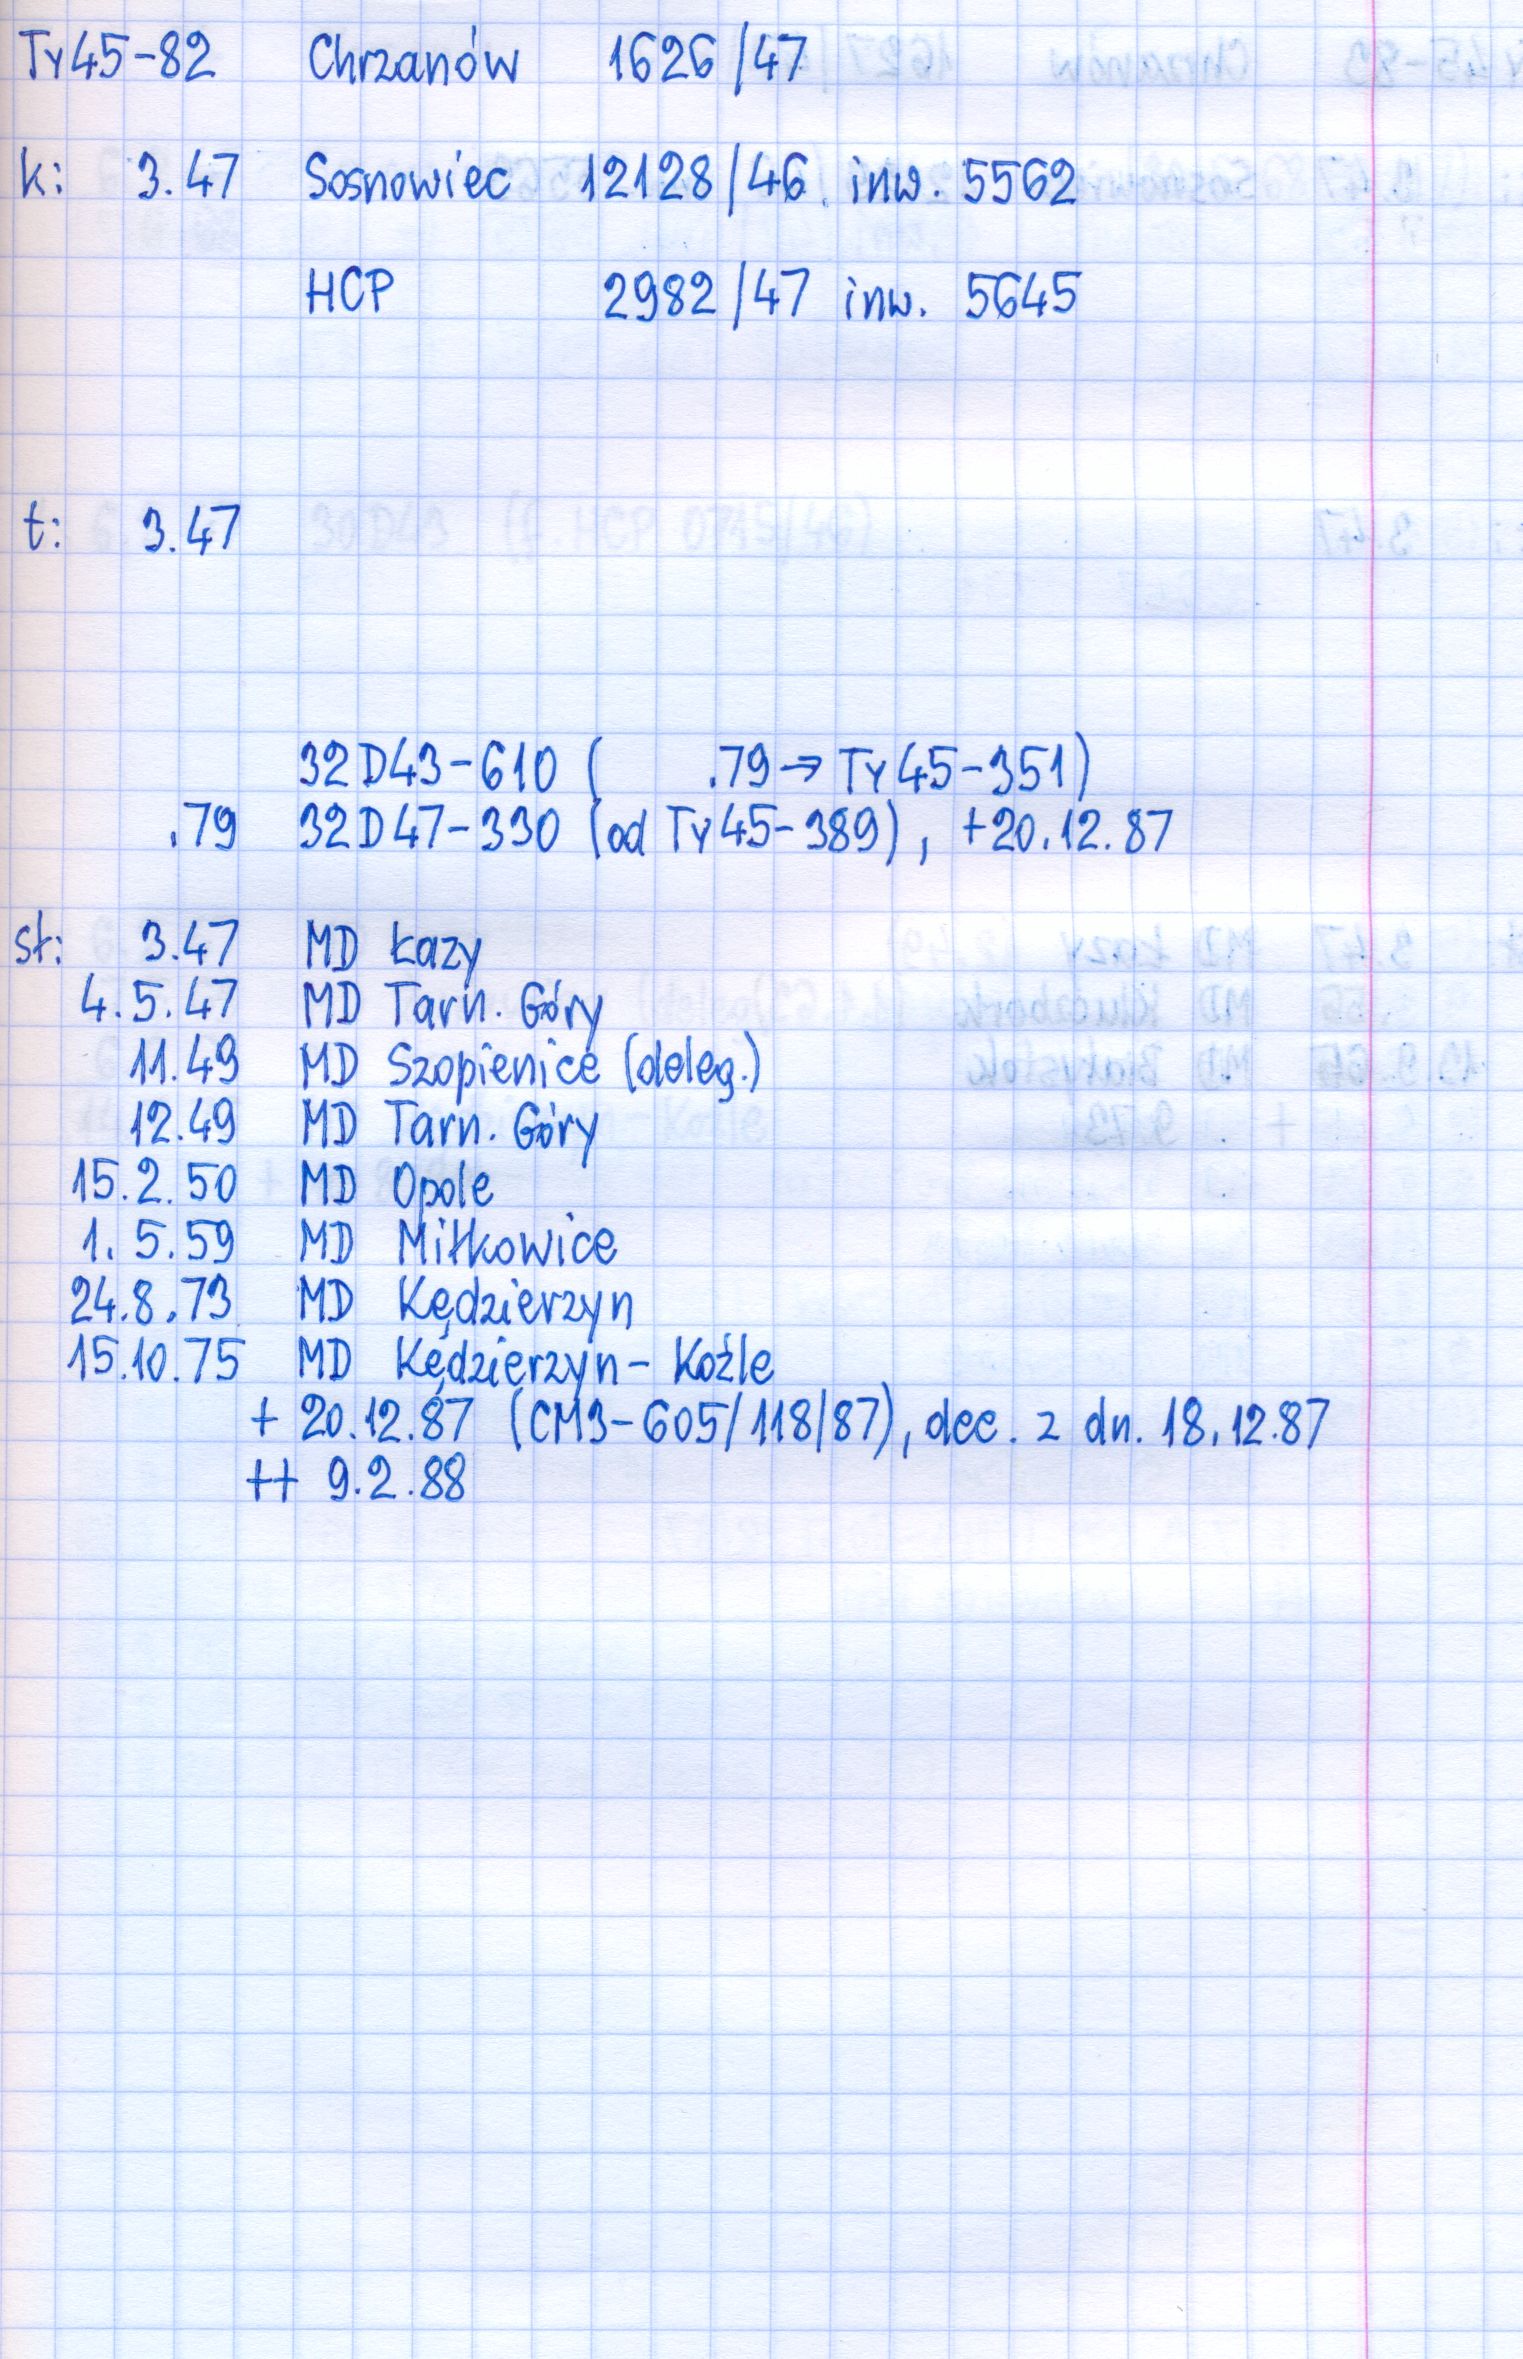 Ty45-82 Chrzanów 1626/47
k: 3.47 Sosnowiec 12128/46 inw. 5562
HCP 2982/47 inw. 5645
t: 3.47
32D43-610 ( .79→ Ty45-351)
.79 32D47-330 (od Ty45-389), +20.12.87
st: 3.47 MD Łazy
4.5.47 MD Tarn. Góry
11.49 MD Szopienice (deleg.)
12.49 MD Tarn. Góry
15.2.50 MD Opole
1.5.59 MD Miłkowice
24.8.73 MD Kędzierzyn
15.10.75 MD Kędzierzyn-Koźle
+ 20.12.87 (CM3-605/118/87), dec. z dn. 18.12.87
++ 9.2.88